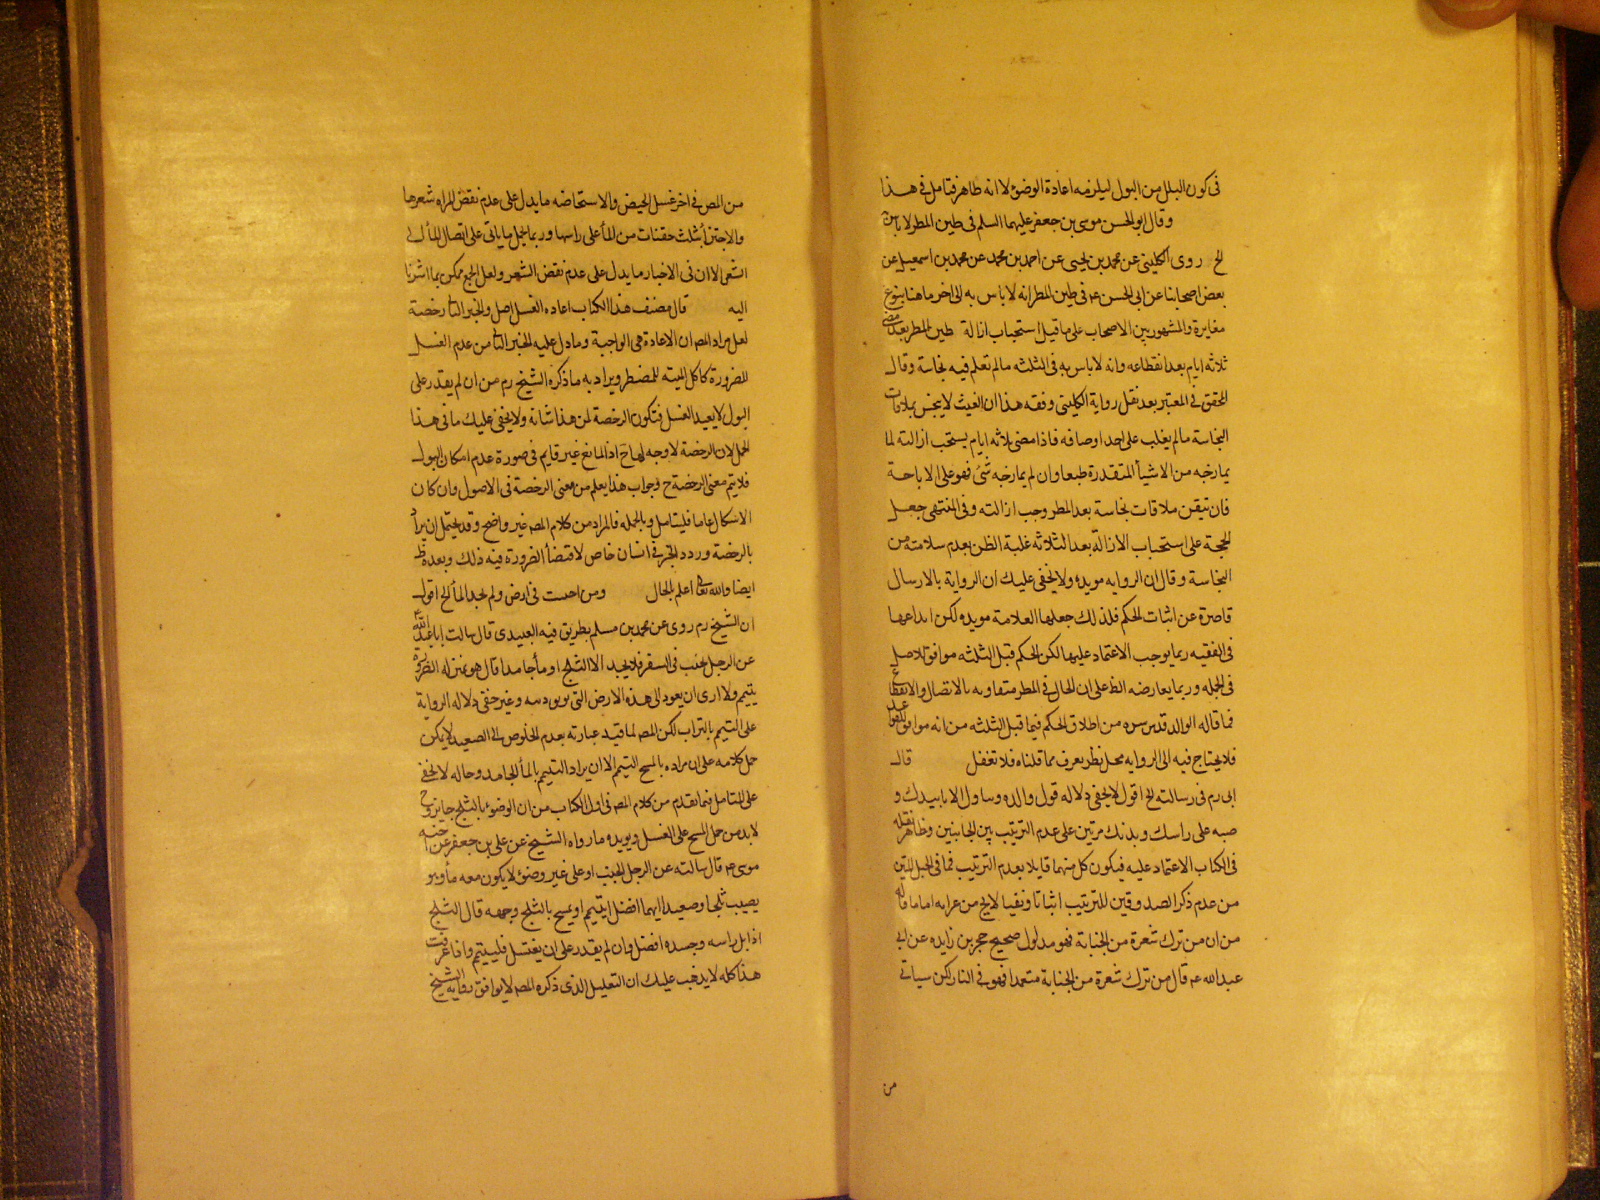 فى كون البلل من البول ليلزمه اعادة الوضوء لا انه طاهر فتامل فى هذا
وقال ابو الحسن موسى بن جعفر عليهما السلم فى طين المطر لا باس
الخ روى الكلينى عن محمد بن يحيى عن احمد بن محمد عن محمد بن اسمعيل عن
بعض اصحابنا عن ابى الحسن ع فى طين المطر انه لا باس به الى اخر ما هنا بنوع
مغايرة والمشهور بين الاصحاب على ما قيل استحباب ازالة طين المطر بعد مضى
ثلاثه ايام بعد انقطاعه وانه لا باس به فى الثلثه مالم تعلم فيه نجاسة وقال
المحقق فى المعتبر بعد نقل رواية الكلينى وفقه هذا ان الغيث لا ينجس بملاقات
النجاسة مالم يغلب على احد اوصافه فاذا مضى ثلاثه ايام يستحب ازالته لما
يمازجه من الاشيآ المتقذرة طبعا وان لم يمازجه شئ فهو على الاباحة
فان تيقن ملاقات نجاسة بعد المطر وجب ازالته وفى المنتهى جعل
الحجة على استحباب الازالة بعد الثلاثه غلبة الظن بعدم سلامته من
النجاسة وقال ان الروايه مويدة ولا يخفى عليك ان الرواية بالارسال
قاصرة عن اثبات الحكم فلذلك جعلها العلامة مويده لكن ايداعها
فى الفقيه ربما يوجب الاعتماد عليها لكن الحكم قبل الثلثه موافق للاصل
فى الجمله وربما يعارضه الظ على ان الحال فى المطر متفاوته بالاتصال والانقطاع
فما قاله الوالد قدس سره من اطلاق الحكم فيما قبل الثلثه من انه موافق للقواعد
فلا يحتاج فيه الى الروايه محل نظر يعرف مما قلناه فلا تغفل قال
ابى رم فى رسالته الخ اقول لا يخفى دلاله قول والده وساول الا بابيدك و
صبه على راسك وبدنك مرتين على عدم الترتيب بين الجانبين وظاهر نقله
فى الكتاب الاعتماد عليه فيكون كل منهما قايلا بعدم الترتيب فما فى الحبل المتين
من عدم ذكر الصدوقين للترتيب اثباتا ونفيا لا يخ من غرابه اما ما قاله
من ان من ترك شعرة من الجنابة فهو مدلول صحيح حجر بن زايده عن ابى
عبد الله ع قال من ترك شعرة من الجنابة متعمدا فهو فى النار لكن سياتى
من
من المص فى اخر غسل الحيض والاستحاضه ما يدل على عدم نقض المراه شعرها
والاجتزآ بثلث حفنات من المآ على راسها وربما يحمل ما ياتى على اتصال المآ الى
الشعر الا ان فى الاخبار ما يدل على عدم نقض الشعر ولعل الجمع ممكن بما اشرنا
اليه قال مصنف هذا الكتاب اعاده الغسل اصل والخبر الثا رخصة
لعل مراد المص ان الاعادة هى الواجبة وما دل عليه الخبر الثا من عدم الغسل
للضرورة كاكل الميته للمضطر ويراد به ما ذكره الشيخ رم من ان لم يقدر على
البول لا يعيد الغسل فتكون الرخصة لمن هذا شانه ولا يخفى عليك ما فى هذا
الحمل لان الرخصة لا وجه لها ح اذ المانع غير قايم فى صورة عدم امكان البول
فلا يتم معنى الرخصة ح وجواب هذا يعلم من معنى الرخصة فى الاصول وان كان
الاشكال عاما فليتامل وبالجمله فالمراد من كلام المص غير واضح وقد يحتمل ان يراد
بالرخصة ورود الخبر فى انسان خاص لاقتضآ الضرورة فيه ذلك وبعده ظ
ايضا والله تعالى اعلم بالحال ومن اجنب فى ارض ولم يجد المآ الخ اقول
ان الشيخ رم روى عن محمد بن مسلم بطريق فيه العبيدى قال سالت ابا عبد الله
عن الرجل يجنب فى السفر فلا يجد الا الثلج او مآ جامدا قال هو بمنزله الضرورة
يتيمم ولا ارى ان يعود الى هذه الارض التى توبق دينه وغير خفى دلاله الرواية
على التيمم بالتراب لكن المص لما قيد عبارته بعدم الخلوص الى الصعيد لا يمكن
حمل كلامه على ان مراده بالمسح التيمم الا ان يراد التيمم بالمآ الجامد وحاله لا يخفى
على المتامل فيما تقدم من كلام المص فى اول الكتاب من ان الوضوء بالثلج جايز وح
لا بد من حمل المسح على الغسل ويويده ما رواه الشيخ عن على بن جعفر عن اخيه
موسى ع قال سالته عن الرجل الجنب او على غير وضوء لا يكون معه مآ وهو
يصيب ثلجا وصعيدا ايهما افضل ايتيمم او يمسح بالثلج وجهه قال الثلج
اذا بل راسه وجسده افضل وان لم يقدر على ان يغتسل فليتيمم واذا عرفت
هذا كله لا يذهب عليك ان التعليل الذى ذكره المص لا يوافق روايه الشيخ